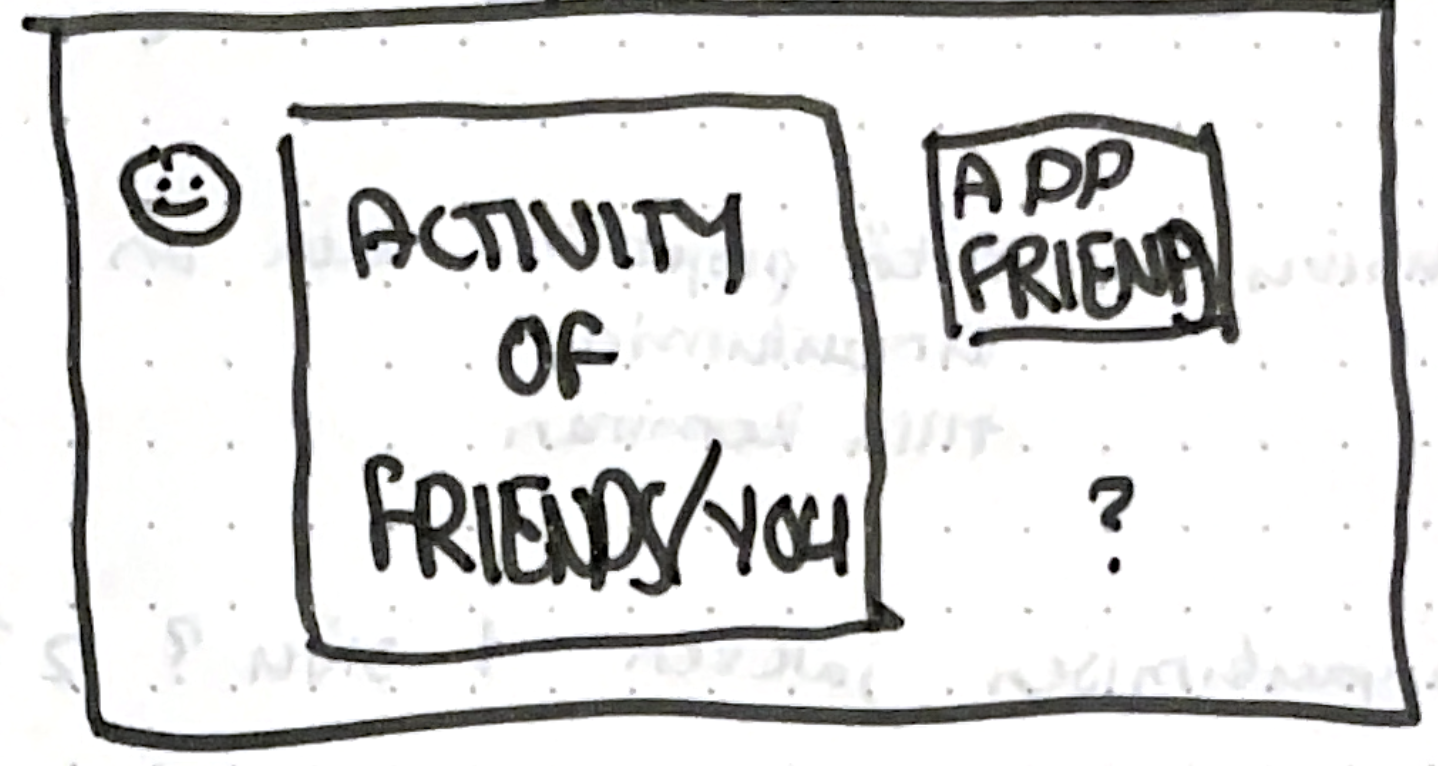 ACTIVITY
OF
FRIENDS/YOU
ADD
FRIEND
?